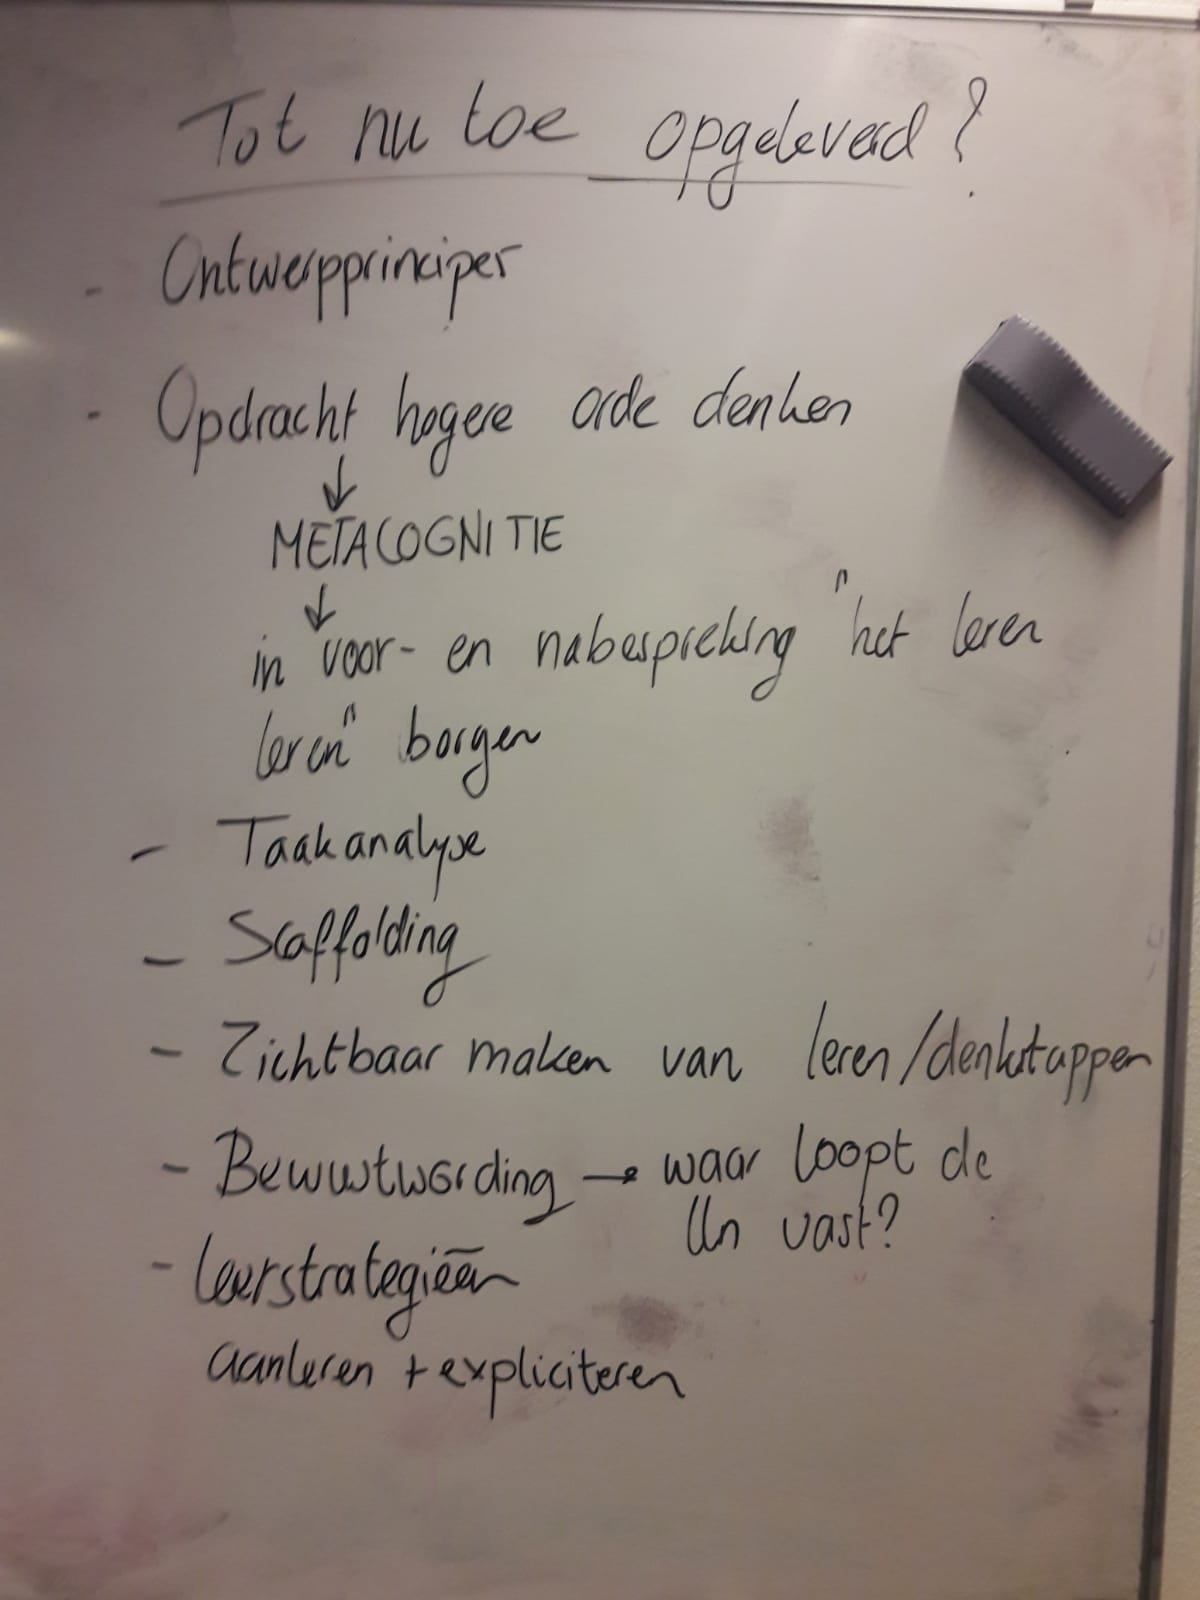 Tot nu toe opgeleverd?
- Ontwerpprincipes
- Opdracht hogere orde denken
↓
METACOGNITIE
↓
in voor- en nabespreking "het leren
leren" borgen
- Taakanalyse
- Scaffolding
- Zichtbaar maken van leren/denkstappen
- Bewustwording → waar loopt de
lln vast?
- Leerstrategieën
aanleren + expliciteren